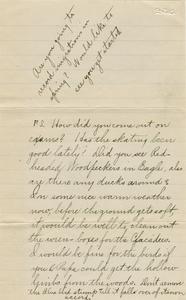 Are you going to
record migrations in
spring? Would like to
see you get started
P.S. How did you come out on
exams? Has the skating been
good lately? Did you see Red-
headed Woodpeckers in Eagle, also
are there any ducks around?
In some nice warm weather
now, before the ground gets soft
it would be well to clean out
the wren-boxes for the
I would be fine for the birds if
you & Papa could get the hollow
limbs from the woods. Don't
the stump till it falls over